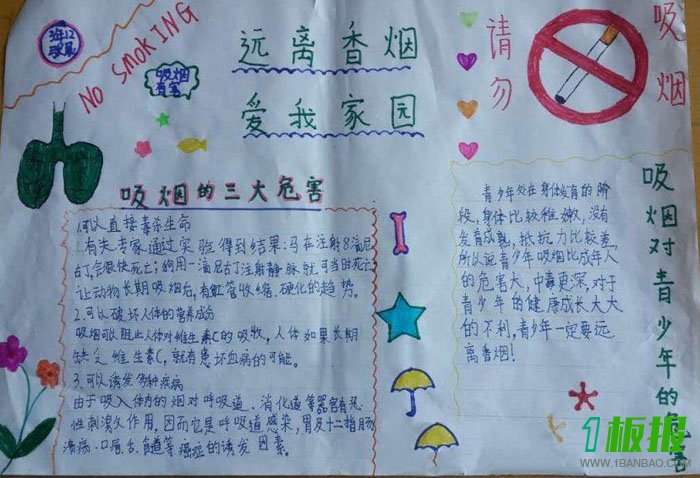 NO SMOKING
吸烟
有害
远离香烟
爱我家园
请勿
吸烟
吸烟的三大危害
1.可以直接毒杀生命
有未专家通过实验得到结果:马在注射8滴尼
古丁会很快死亡;狗用一滴尼古丁注射静脉就可当时死亡
让动物长期吸烟后,有血管收缩、硬化的趋势。
2.可以破坏人体的营养成分
吸烟可以阻止人体对维生素C的吸收,人体如果长期
缺乏维生素C,就有患坏血病的可能。
3.可以诱发多种疾病
由于吸入体内的烟对呼吸道、消化道等器官有恶
性刺激作用,因而它是呼吸道感染,胃及十二指肠
溃疡、口唇、舌、食道等癌症的诱发因素。
青少年处在身体发育的阶
段,身体比较稚嫩,没有
发育成熟,抵抗力比较差,
所以说青少年吸烟比成年人
的危害大,中毒更深,对于
青少年的健康成长大大
的不利,青少年一定要远
离香烟!
吸烟对青少年的危害
1板报
WWW.1BANBAO.COM